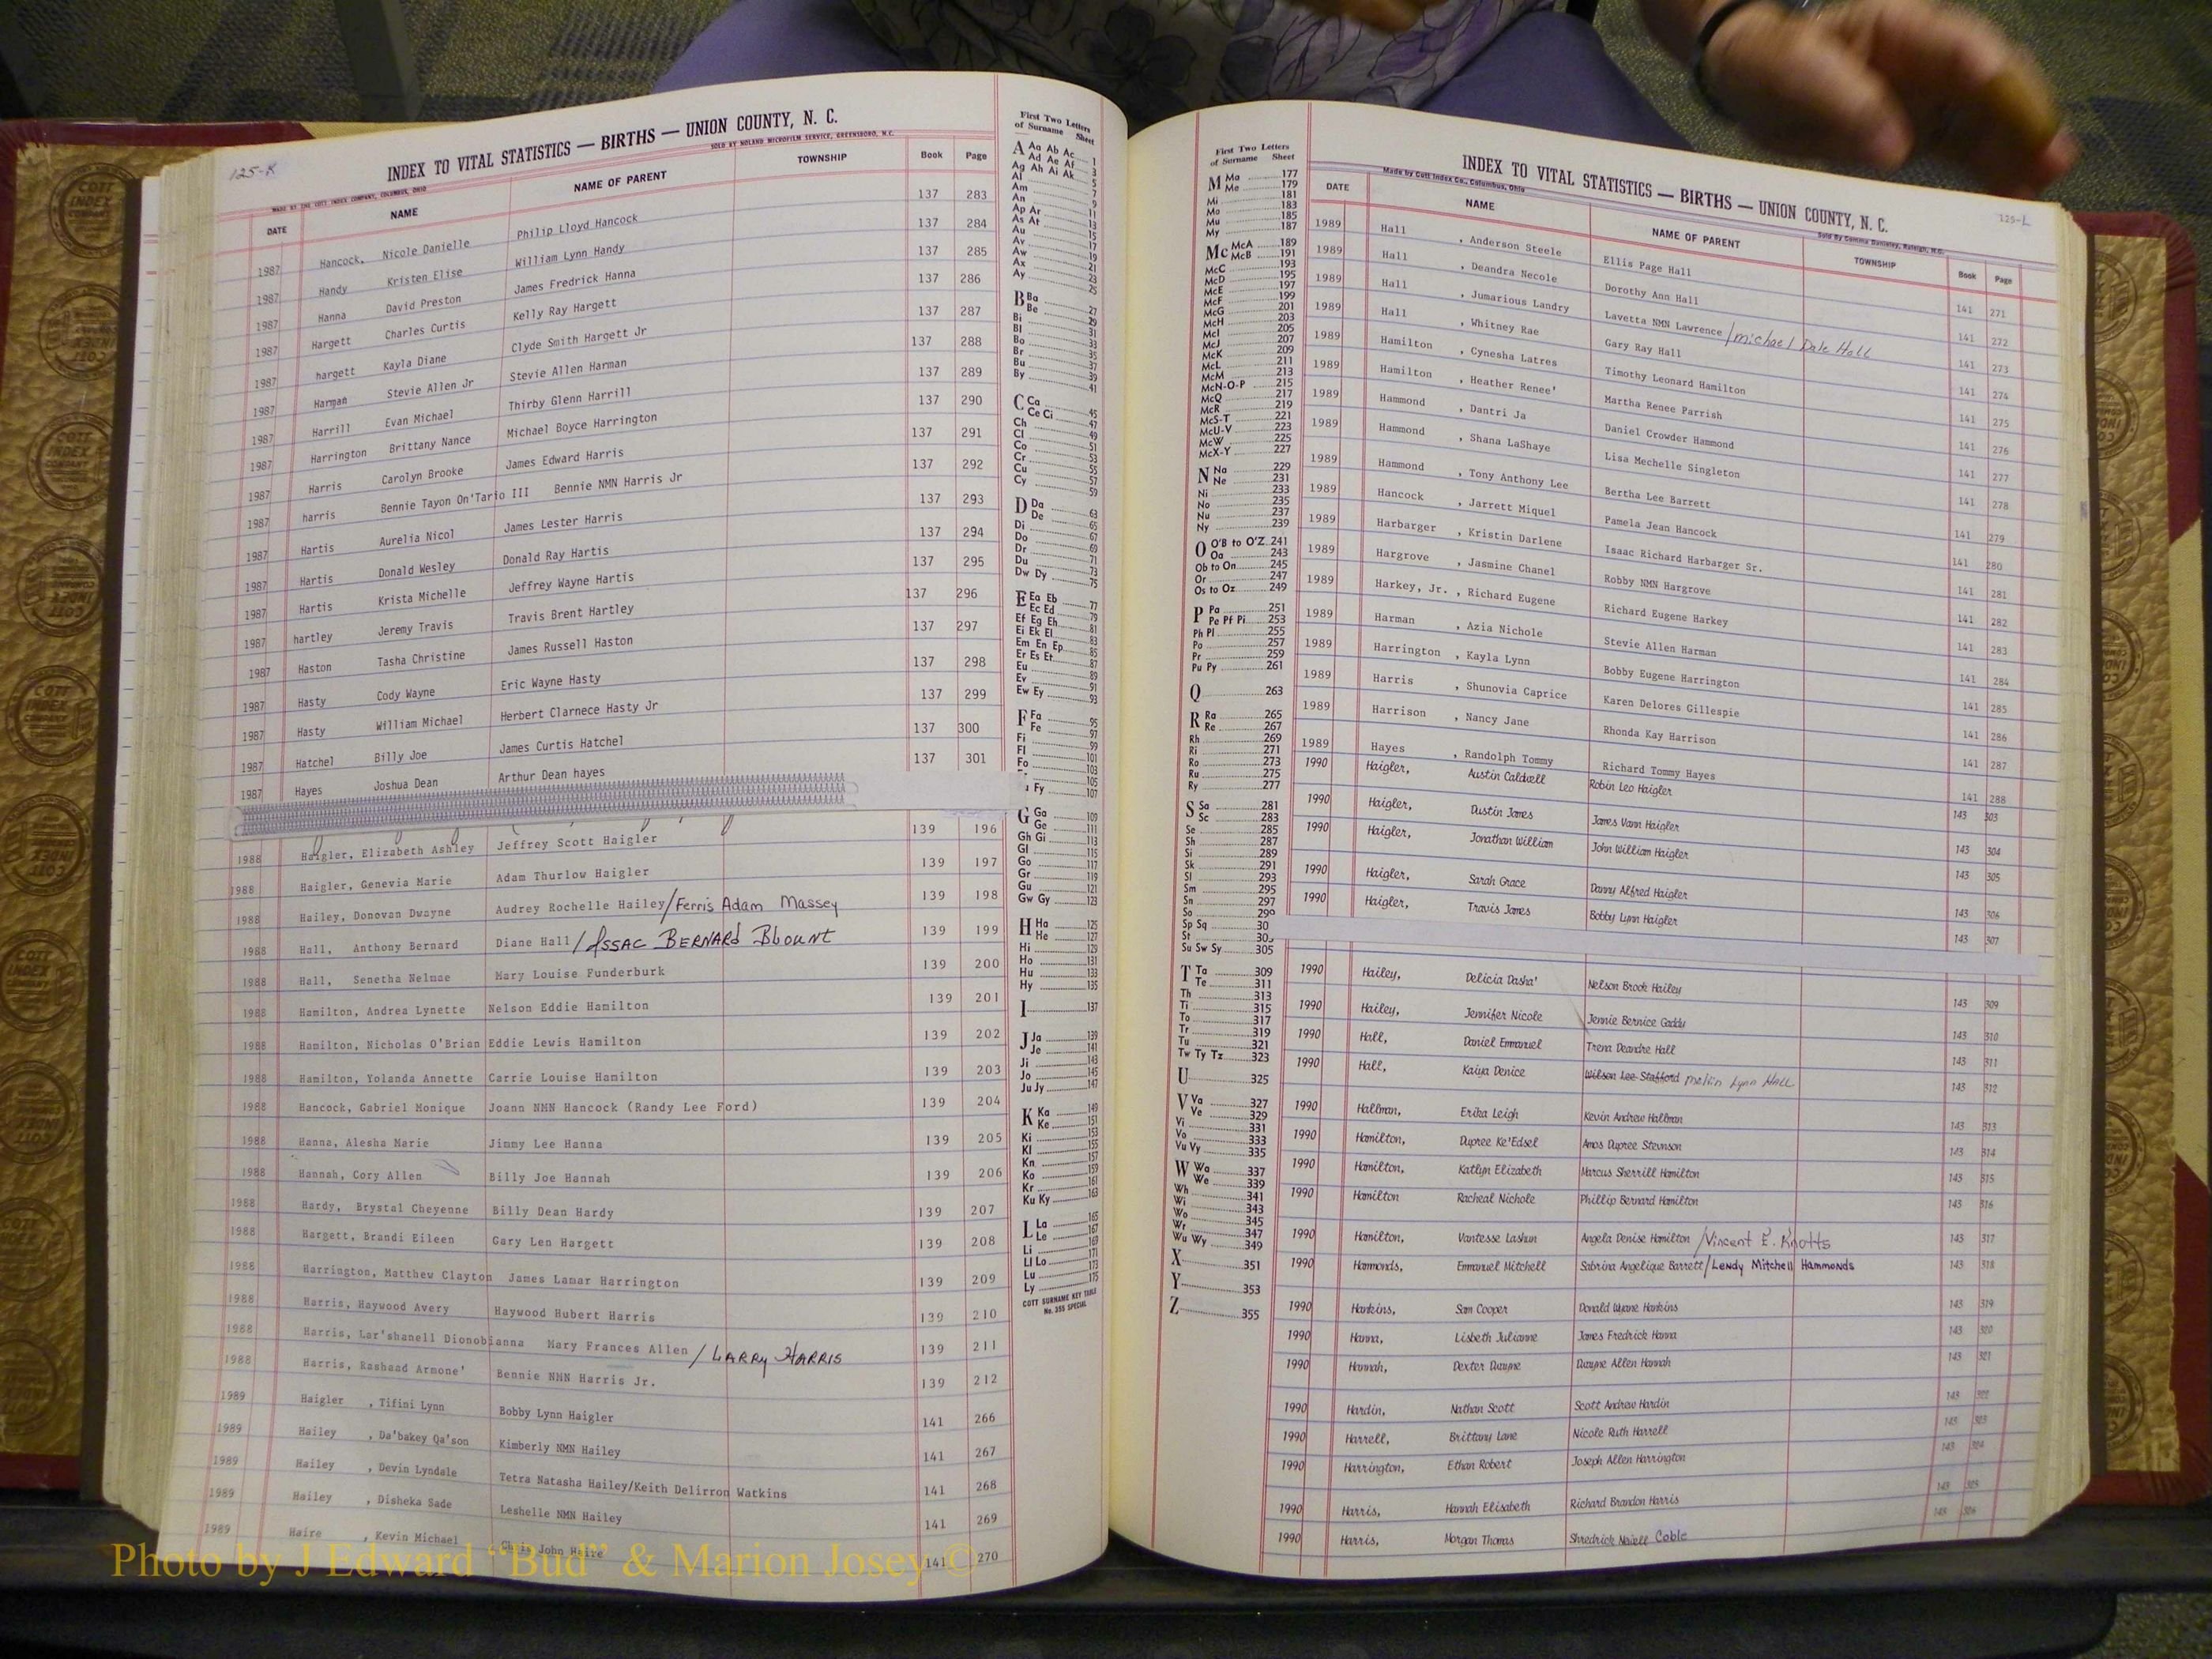 125-K
INDEX TO VITAL STATISTICS — BIRTHS — UNION COUNTY, N. C.
MADE BY THE COTT INDEX COMPANY, COLUMBUS, OHIO SOLD BY NOLAND MICROFILM SERVICE, GREENSBORO, N.C.
DATE NAME NAME OF PARENT TOWNSHIP Book Page
1987 Hancock, Nicole Danielle Philip Lloyd Hancock 137 283
1987 Handy Kristen Elise William Lynn Handy 137 284
1987 Hanna David Preston James Fredrick Hanna 137 285
1987 Hargett Charles Curtis Kelly Ray Hargett 137 286
1987 hargett Kayla Diane Clyde Smith Hargett Jr 137 287
1987 Harman Stevie Allen Jr Stevie Allen Harman 137 288
1987 Harrill Evan Michael Thirby Glenn Harrill 137 289
1987 Harrington Brittany Nance Michael Boyce Harrington 137 290
1987 Harris Carolyn Brooke James Edward Harris 137 291
1987 harris Bennie Tayon On'Tario III Bennie NMN Harris Jr 137 292
1987 Hartis Aurelia Nicol James Lester Harris 137 293
1987 Hartis Donald Wesley Donald Ray Hartis 137 294
1987 Hartis Krista Michelle Jeffrey Wayne Hartis 137 295
1987 hartley Jeremy Travis Travis Brent Hartley 137 296
1987 Haston Tasha Christine James Russell Haston 137 297
1987 Hasty Cody Wayne Eric Wayne Hasty 137 298
1987 Hasty William Michael Herbert Clarnece Hasty Jr 137 299
1987 Hatchel Billy Joe James Curtis Hatchel 137 300
1987 Hayes Joshua Dean Arthur Dean hayes 137 301
1988 Haigler, Elizabeth Ashley Jeffrey Scott Haigler 139 196
1988 Haigler, Genevia Marie Adam Thurlow Haigler 139 197
1988 Hailey, Donovan Dwayne Audrey Rochelle Hailey/Ferris Adam Massey 139 198
1988 Hall, Anthony Bernard Diane Hall/Issac BERNARd Blount 139 199
1988 Hall, Senetha Nelmae Mary Louise Funderburk 139 200
1988 Hamilton, Andrea Lynette Nelson Eddie Hamilton 139 201
1988 Hamilton, Nicholas O'Brian Eddie Lewis Hamilton 139 202
1988 Hamilton, Yolanda Annette Carrie Louise Hamilton 139 203
1988 Hancock, Gabriel Monique Joann NMN Hancock (Randy Lee Ford) 139 204
1988 Hanna, Alesha Marie Jimmy Lee Hanna 139 205
1988 Hannah, Cory Allen Billy Joe Hannah 139 206
1988 Hardy, Brystal Cheyenne Billy Dean Hardy 139 207
1988 Hargett, Brandi Eileen Gary Len Hargett 139 208
1988 Harrington, Matthew Clayton James Lamar Harrington 139 209
1988 Harris, Haywood Avery Haywood Hubert Harris 139 210
1988 Harris, Lar'shanell Dionobianna Mary Frances Allen / LARRy HARRIS 139 211
1988 Harris, Rashaad Armone' Bennie NMN Harris Jr. 139 212
1989 Haigler , Tifini Lynn Bobby Lynn Haigler 141 266
1989 Hailey , Da'bakey Qa'son Kimberly NMN Hailey 141 267
1989 Hailey , Devin Lyndale Tetra Natasha Hailey/Keith Delirron Watkins 141 268
1989 Hailey , Disheka Sade Leshelle NMN Hailey 141 269
1989 Haire , Kevin Michael Chris John Haire 141 270
First Two Letters
of Surname Sheet
A Aa Ab Ac 1
Ad Ae Af 3
Ag Ah Ai Ak 5
Al 7
Am 9
An 11
Ap Ar 13
As At 15
Au 17
Av 19
Aw 21
Ax 23
Ay 25
B Ba 27
Be 29
Bi 31
Bl 33
Bo 35
Br 37
Bu 39
By 41
C Ca 45
Ce Ci 47
Ch 49
Cl 51
Co 53
Cr 55
Cu 57
Cy 59
D Da 63
De 65
Di 67
Do 69
Dr 71
Du 73
Dw Dy 75
E Ea Eb 77
Ec Ed 79
Ef Eg Eh 81
Ei Ek El 83
Em En Ep 85
Er Es Et 87
Eu 89
Ev 91
Ew Ey 93
F Fa 95
Fe 97
Fi 99
Fl 101
Fo 103
105
Fy 107
G Ga 109
Ge 111
Gh Gi 113
Gl 115
Go 117
Gr 119
Gu 121
Gw Gy 123
H Ha 125
He 127
Hi 129
Ho 131
Hu 133
Hy 135
I 137
J Ja 139
Je 141
Ji 143
Jo 145
Ju Jy 147
K Ka 149
Ke 151
Ki 153
Kl 155
Kn 157
Ko 159
Kr 161
Ku Ky 163
L La 165
Le 167
Li 169
Ll Lo 171
Lu 173
Ly 175
COTT SURNAME KEY TABLE
No. 355 SPECIAL
First Two Letters
of Surname Sheet
M Ma 177
Me 179
Mi 181
Mo 183
Mu 185
My 187
Mc McA 189
McB 191
McC 193
McD 195
McE 197
McF 199
McG 201
McH 203
McI 205
McJ 207
McK 209
McL 211
McM 213
McN-O-P 215
McQ 217
McR 219
McS-T 221
McU-V 223
McW 225
McX-Y 227
N Na 229
Ne 231
Ni 233
No 235
Nu 237
Ny 239
O O'B to O'Z 241
Oa 243
Ob to On 245
Or 247
Os to Oz 249
P Pa 251
Pe Pf Pi 253
Ph Pl 255
Po 257
Pr 259
Pu Py 261
Q 263
R Ra 265
Re 267
Rh 269
Ri 271
Ro 273
Ru 275
Ry 277
S Sa 281
Sc 283
Se 285
Sh 287
Si 289
Sk 291
Sl 293
Sm 295
Sn 297
So 299
Sp Sq 30
St 30
Su Sw Sy 305
T Ta 309
Te 311
Th 313
Ti 315
To 317
Tr 319
Tu 321
Tw Ty Tz 323
U 325
V Va 327
Ve 329
Vi 331
Vo 333
Vu Vy 335
W Wa 337
We 339
Wh 341
Wi 343
Wo 345
Wr 347
Wu Wy 349
X 351
Y 353
Z 355
125-L
INDEX TO VITAL STATISTICS — BIRTHS — UNION COUNTY, N. C.
Made by Cott Index Co., Columbus, Ohio
DATE NAME NAME OF PARENT TOWNSHIP Book Page
1989 Hall , Anderson Steele Ellis Page Hall 141 271
1989 Hall , Deandra Necole Dorothy Ann Hall 141 272
1989 Hall , Jumarious Landry Lavetta NMN Lawrence /michael Dale Hall 141 273
1989 Hall , Whitney Rae Gary Ray Hall 141 274
1989 Hamilton , Cynesha Latres Timothy Leonard Hamilton 141 275
1989 Hamilton , Heather Renee' Martha Renee Parrish 141 276
1989 Hammond , Dantri Ja Daniel Crowder Hammond 141 277
1989 Hammond , Shana LaShaye Lisa Mechelle Singleton 141 278
1989 Hammond , Tony Anthony Lee Bertha Lee Barrett 141 279
1989 Hancock , Jarrett Miquel Pamela Jean Hancock 141 280
1989 Harbarger , Kristin Darlene Isaac Richard Harbarger Sr. 141 281
1989 Hargrove , Jasmine Chanel Robby NMN Hargrove 141 282
1989 Harkey, Jr. , Richard Eugene Richard Eugene Harkey 141 283
1989 Harman , Azia Nichole Stevie Allen Harman 141 284
1989 Harrington , Kayla Lynn Bobby Eugene Harrington 141 285
1989 Harris , Shunovia Caprice Karen Delores Gillespie 141 286
1989 Harrison , Nancy Jane Rhonda Kay Harrison 141 287
1989 Hayes , Randolph Tommy Richard Tommy Hayes 141 288
1990 Haigler, Austin Caldwell Robin Leo Haigler 143 303
1990 Haigler, Dustin James James Vann Haigler 143 304
1990 Haigler, Jonathan William John William Haigler 143 305
1990 Haigler, Sarah Grace Danny Alfred Haigler 143 306
1990 Haigler, Travis James Bobby Lynn Haigler 143 307
1990 Hailey, Delicia Dasha' Nelson Brock Hailey 143 309
1990 Hailey, Jennifer Nicole Jennie Bernice Gaddy 143 310
1990 Hall, Daniel Emmanuel Trena Deandre Hall 143 311
1990 Hall, Kaiya Denice Wilson Lee Stafford Melvin Lynn Hall 143 312
1990 Hallman, Erika Leigh Kevin Andrew Hallman 143 313
1990 Hamilton, Dupree Ke'Edsel Amos Dupree Stevnson 143 314
1990 Hamilton, Katlyn Elizabeth Marcus Sherrill Hamilton 143 315
1990 Hamilton Racheal Nichole Phillip Bernard Hamilton 143 316
1990 Hamilton, Vantesse Lashun Angela Denise Hamilton /Vincent E. Knotts 143 317
1990 Hammonds, Emmanuel Mitchell Sabrina Angelique Barrett/Lendy Mitchell Hammonds 143 318
1990 Hankins, Sam Cooper Donald Wyane Hankins 143 319
1990 Hanna, Lisbeth Julianne James Fredrick Hanna 143 320
1990 Hannah, Dexter Dwayne Dwayne Allen Hannah 143 321
1990 Hardin, Nathan Scott Scott Andrew Hardin 143 322
1990 Harrell, Brittany Lane Nicole Ruth Harrell 143 323
1990 Harrington, Ethan Robert Joseph Allen Harrington 143 324
1990 Harris, Hannah Elisabeth Richard Brandon Harris 143 325
1990 Harris, Morgan Thomas Shredrick Coble 143 326
Photo by J Edward “Bud” & Marion Josey ©